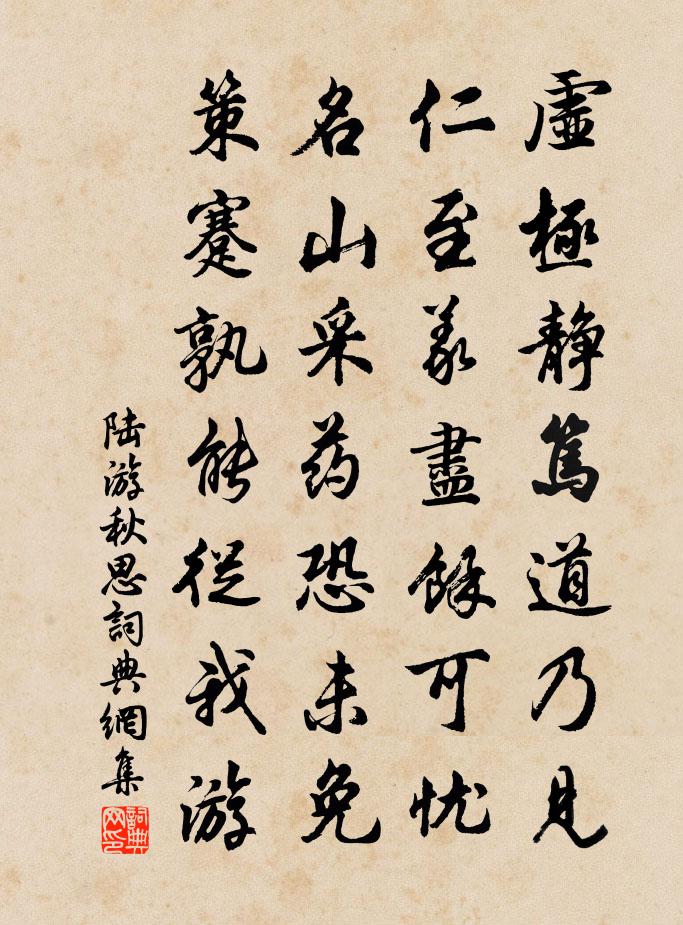 虛極靜篤道乃見
仁至義盡餘可忧
名山采药恐未免
策蹇孰能從我游
陆游秋思詞典網集
詞典网印